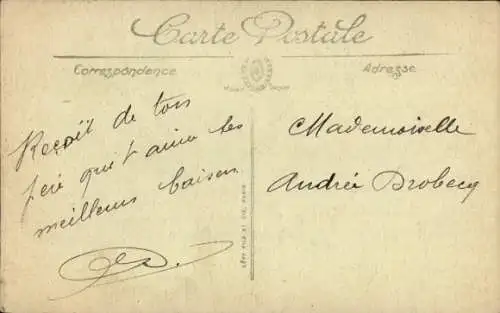 Carte Postale
Correspondence
Adresse
Reçoit de ton
père qui t'aime ses
meilleurs baisers
Mademoiselle
Andrée Drobecq